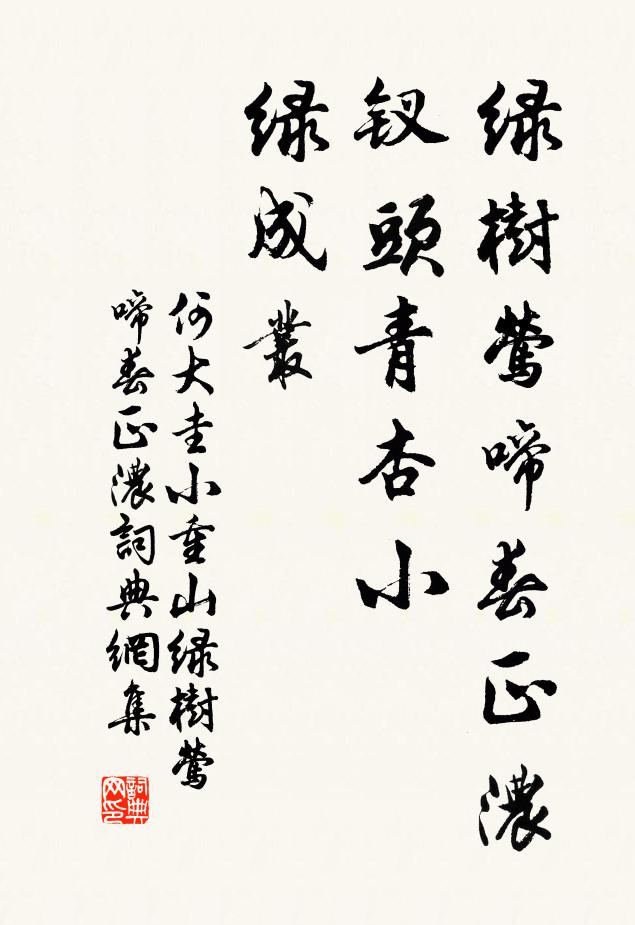 绿樹鶯啼春正濃
釵頭青杏小
绿成叢
何大圭小重山绿樹鶯
啼春正濃詞典網集
詞典
网印